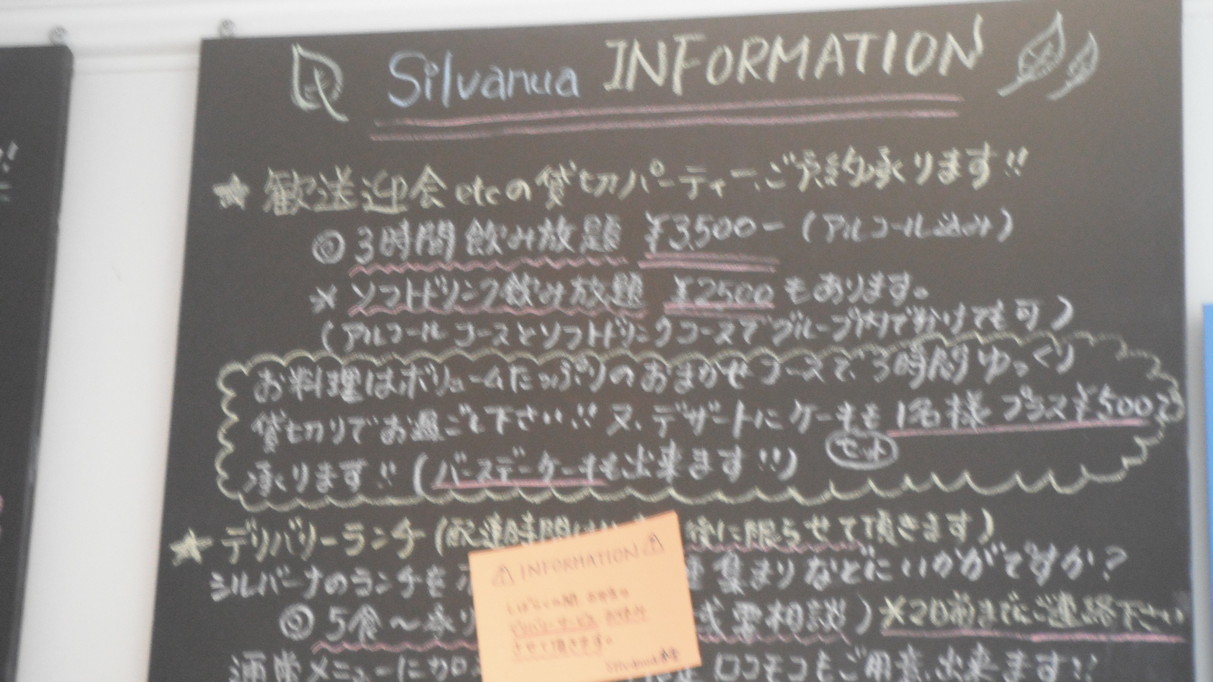 Silvanua INFORMATION
★ 歓送迎会etcの貸切パーティーご予約承ります!!
◎ 3時間飲み放題 ¥3,500−(アルコール込み)
※ ソフトドリンク飲み放題 ¥2500 もあります。
(アルコールコースとソフトドリンクコースでグループ内で分けても可)
お料理はボリュームたっぷりのおまかせコースで、3時間ゆっくり
貸切りでお過ごし下さい!! 又、デザートにケーキも 1名様 プラス¥500で
セット
承ります!! (バースデーケーキも出来ます!!)
★ デリバリーランチ(配達時間は 後に限らせて頂きます)
シルバーナのランチを 集まりなどにいかがですか?
◎ 5食〜承り 要相談) ※2日前までにご連絡下さい
通常メニューに加 ロコモコもご用意出来ます!!
INFORMATION
させて頂きます。
Silvanua